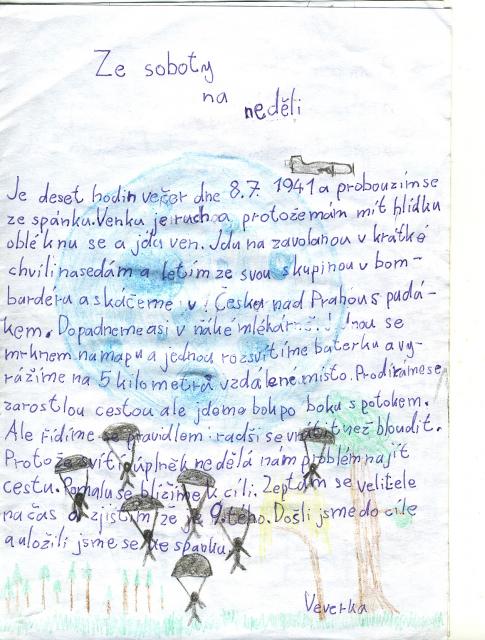 Ze soboty
na neděli
Je deset hodin večer dne 8.7. 1941 a probouzím se
ze spánku. Venku je ruch a protože mám mít hlídku
obléknu se a jdu ven. Jdu na zavolanou v krátké
chvíli nasedám a letím ze svou skupinou v bom-
bardéru a skáčeme v Česku nad Prahou s padá-
kem. Dopadneme asi v ňáké se
mrknem na mapu a jednou rozsvítíme baterku a vy-
rážíme na 5 kilometrů vzdálené místo. Prodíráme se
zarostlou cestou ale jdeme bok po boku s potokem.
Ale řídíme se pravidlem radši se vrátit než bloudit.
Protože svítí úplněk nedělá nam problém najít
cestu. Pomalu se blížíme k cíli. Zeptám se velitele
na čas a zjistím že je 9.tého. Došli jsme do cíle
a uložili jsme se ke spánku.
Veverka